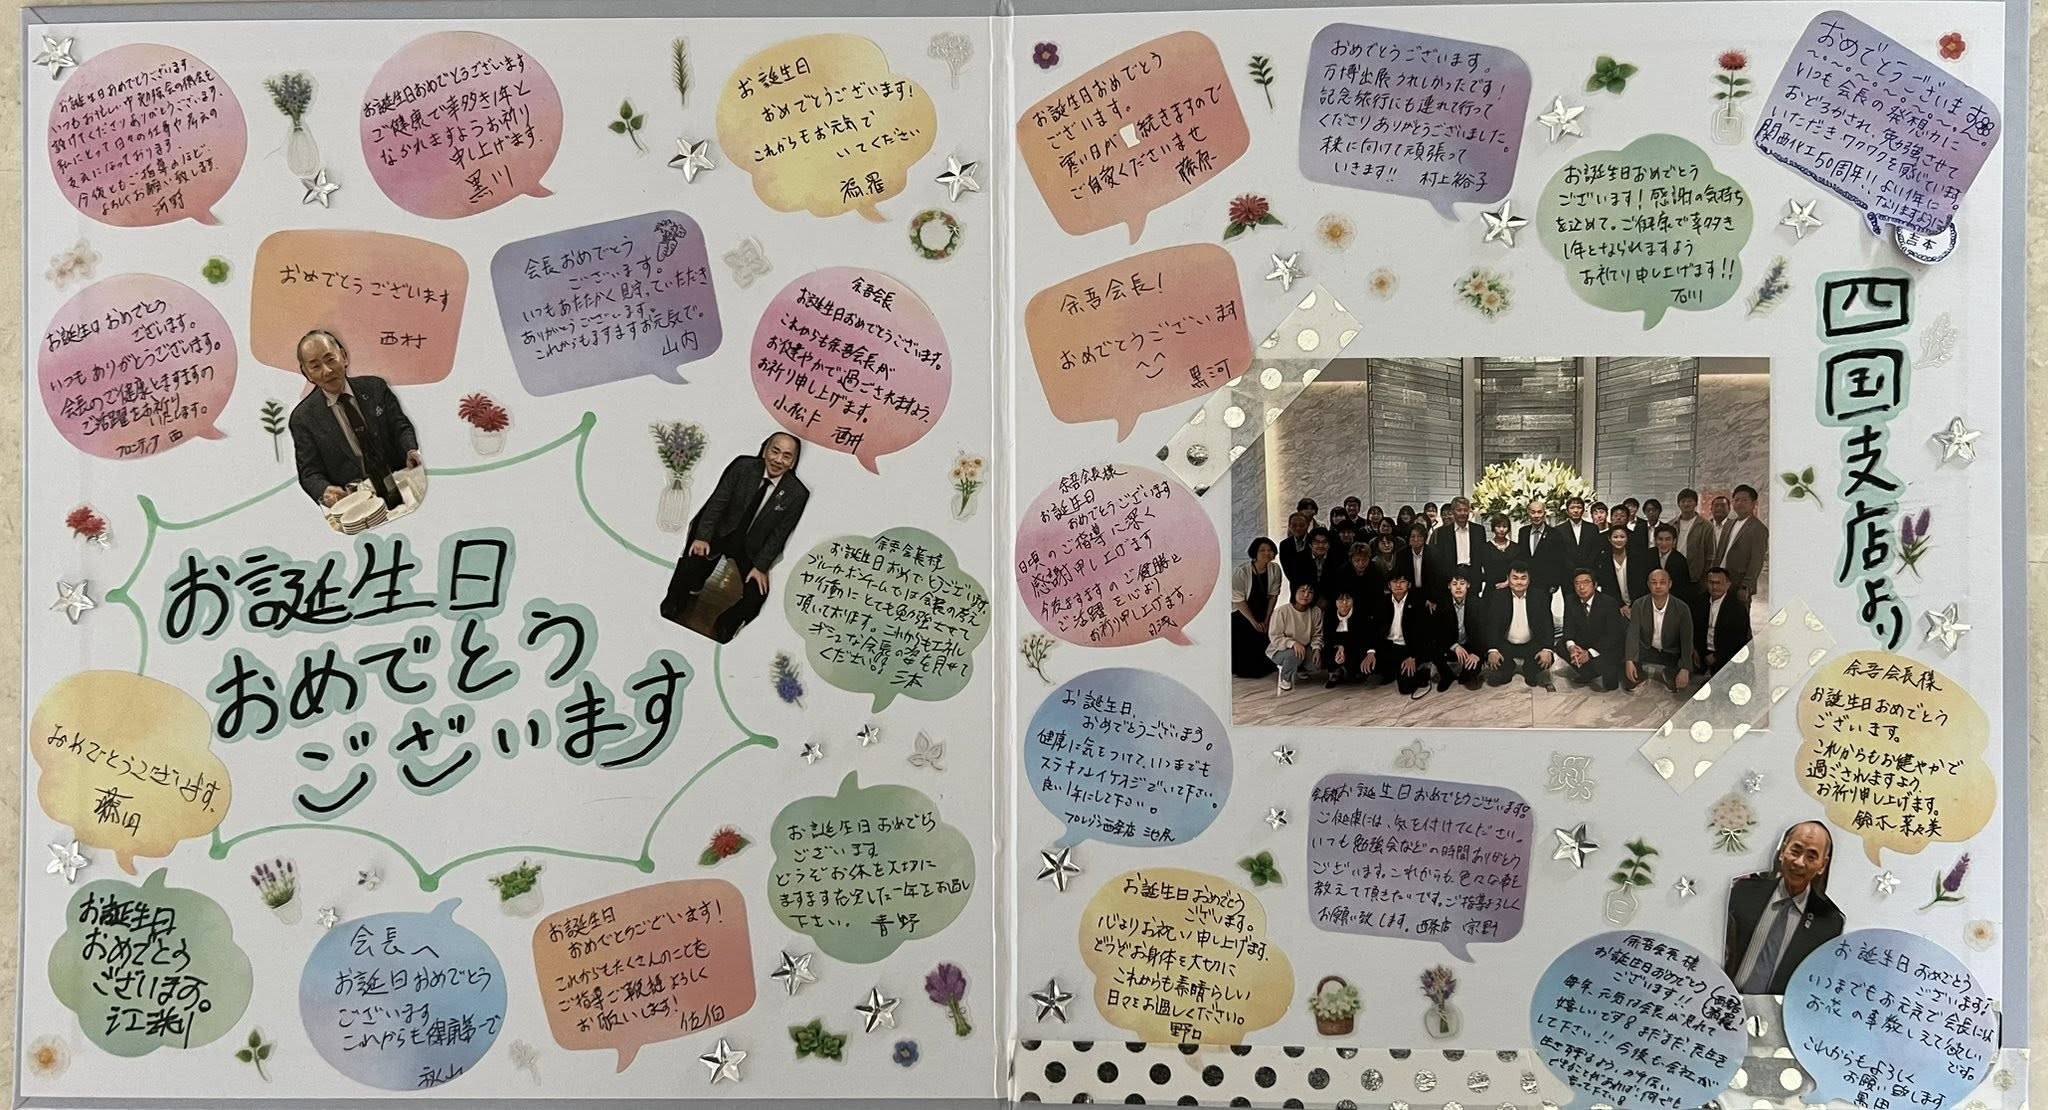 お誕生日おめでとうございます。
いつもお忙しい中勉強会の機会を
設けてくださりありがとうございます。
私にとって日々の仕事や
支えになっております。
今後ともご指導のほど、
よろしくお願い致します。
河村
お誕生日おめでとうございます
ご健康で幸多き1年と
なられますようお祈り
申し上げます。
黒川
お誕生日
おめでとうございます!
これからもお元気で
いてください
お誕生日おめでとう
ございます。
いつもありがとうございます。
会長のご健康とますますの
ご活躍をお祈り
いたします。
フロンティア 西
おめでとうございます
西村
会長おめでとう
ございます。
いつもあたたかく見守っていただき
ありがとうございます。
これからもますますお元気で。
山内
余吾会長
お誕生日おめでとうございます。
これからも余吾会長が
お健やかで過ごされますよう
お祈り申し上げます。
小松上 酒井
お誕生日
おめでとう
ございます
余吾会長様
お誕生日おめでとうございます。
ブルーカーボンチームでは会長の考え
や行動にとても勉強させて
頂いております。これからもエネル
ギッシュな会長の姿を見せて
ください!!
三本
おめでとうございます。
藤田
お誕生日おめでとう
ございます
どうぞお体を大切に
ますます充実した一年をお過し
下さい。 青野
お誕生日
おめでとう
ございます。
会長へ
お誕生日おめでとう
ございます
これからも健康第一で
秋山
お誕生日
おめでとうございます!
これからもたくさんのことを
ご指導ご鞭撻よろしく
お願いします!
佐伯
お誕生日おめでとう
ございます。
寒い日が続きますので
ご自愛くださいませ
藤原
おめでとうございます。
万博出展うれしかったです!
記念旅行にも連れて行って
くださりありがとうございました。
株に向けて頑張って
いきます!! 村上裕子
お誕生日おめでとう
ございます!感謝の気持ち
を込めて。ご健康で幸多き
1年となられますよう
お祈り申し上げます!!
石川
おめでとうございます
いつも会長の発想力に
おどろかされ、勉強させて
いただきワクワクを感じています。
関西化工50周年!!よい1年に
なりますように
吉本
余吾会長!
おめでとうございます
黒河
四国支店より
余吾会長様
お誕生日
おめでとうございます
日頃のご指導に深く
感謝申し上げます
今後ますますのご健勝と
ご活躍を心より
お祈り申し上げます。
お誕生日、
おめでとうございます。
健康に気をつけて、いつまでも
ステキなイケオジでいて下さい。
良い1年にして下さい。
会長様お誕生日おめでとうございます。
ご健康には、気を付けてください。
いつも勉強会などの時間ありがとう
ございます。これからも、色々な事を
教えて頂きたいです。ご指導よろしく
お願い致します。
余吾会長様
お誕生日おめでとう
ございます。
これからもお健やかで
過ごされますよう
お祈り申し上げます。
鈴木 菜々美
お誕生日おめでとう
ございます。
心よりお祝い申し上げます。
どうぞお身体を大切に
これからも素晴らしい
日々をお過しください。
野口
余吾会長様
お誕生日おめでとう
ございます!!
毎年、元気な会長が見れて
嬉しいです。まだまだ、長生き
して下さい!!今後も会社が
お誕生日おめでとう
ございます!
いつまでもお元気で会長には
お花の事教しえて欲しい
です。
これからもよろしく
お願い致します
黒田